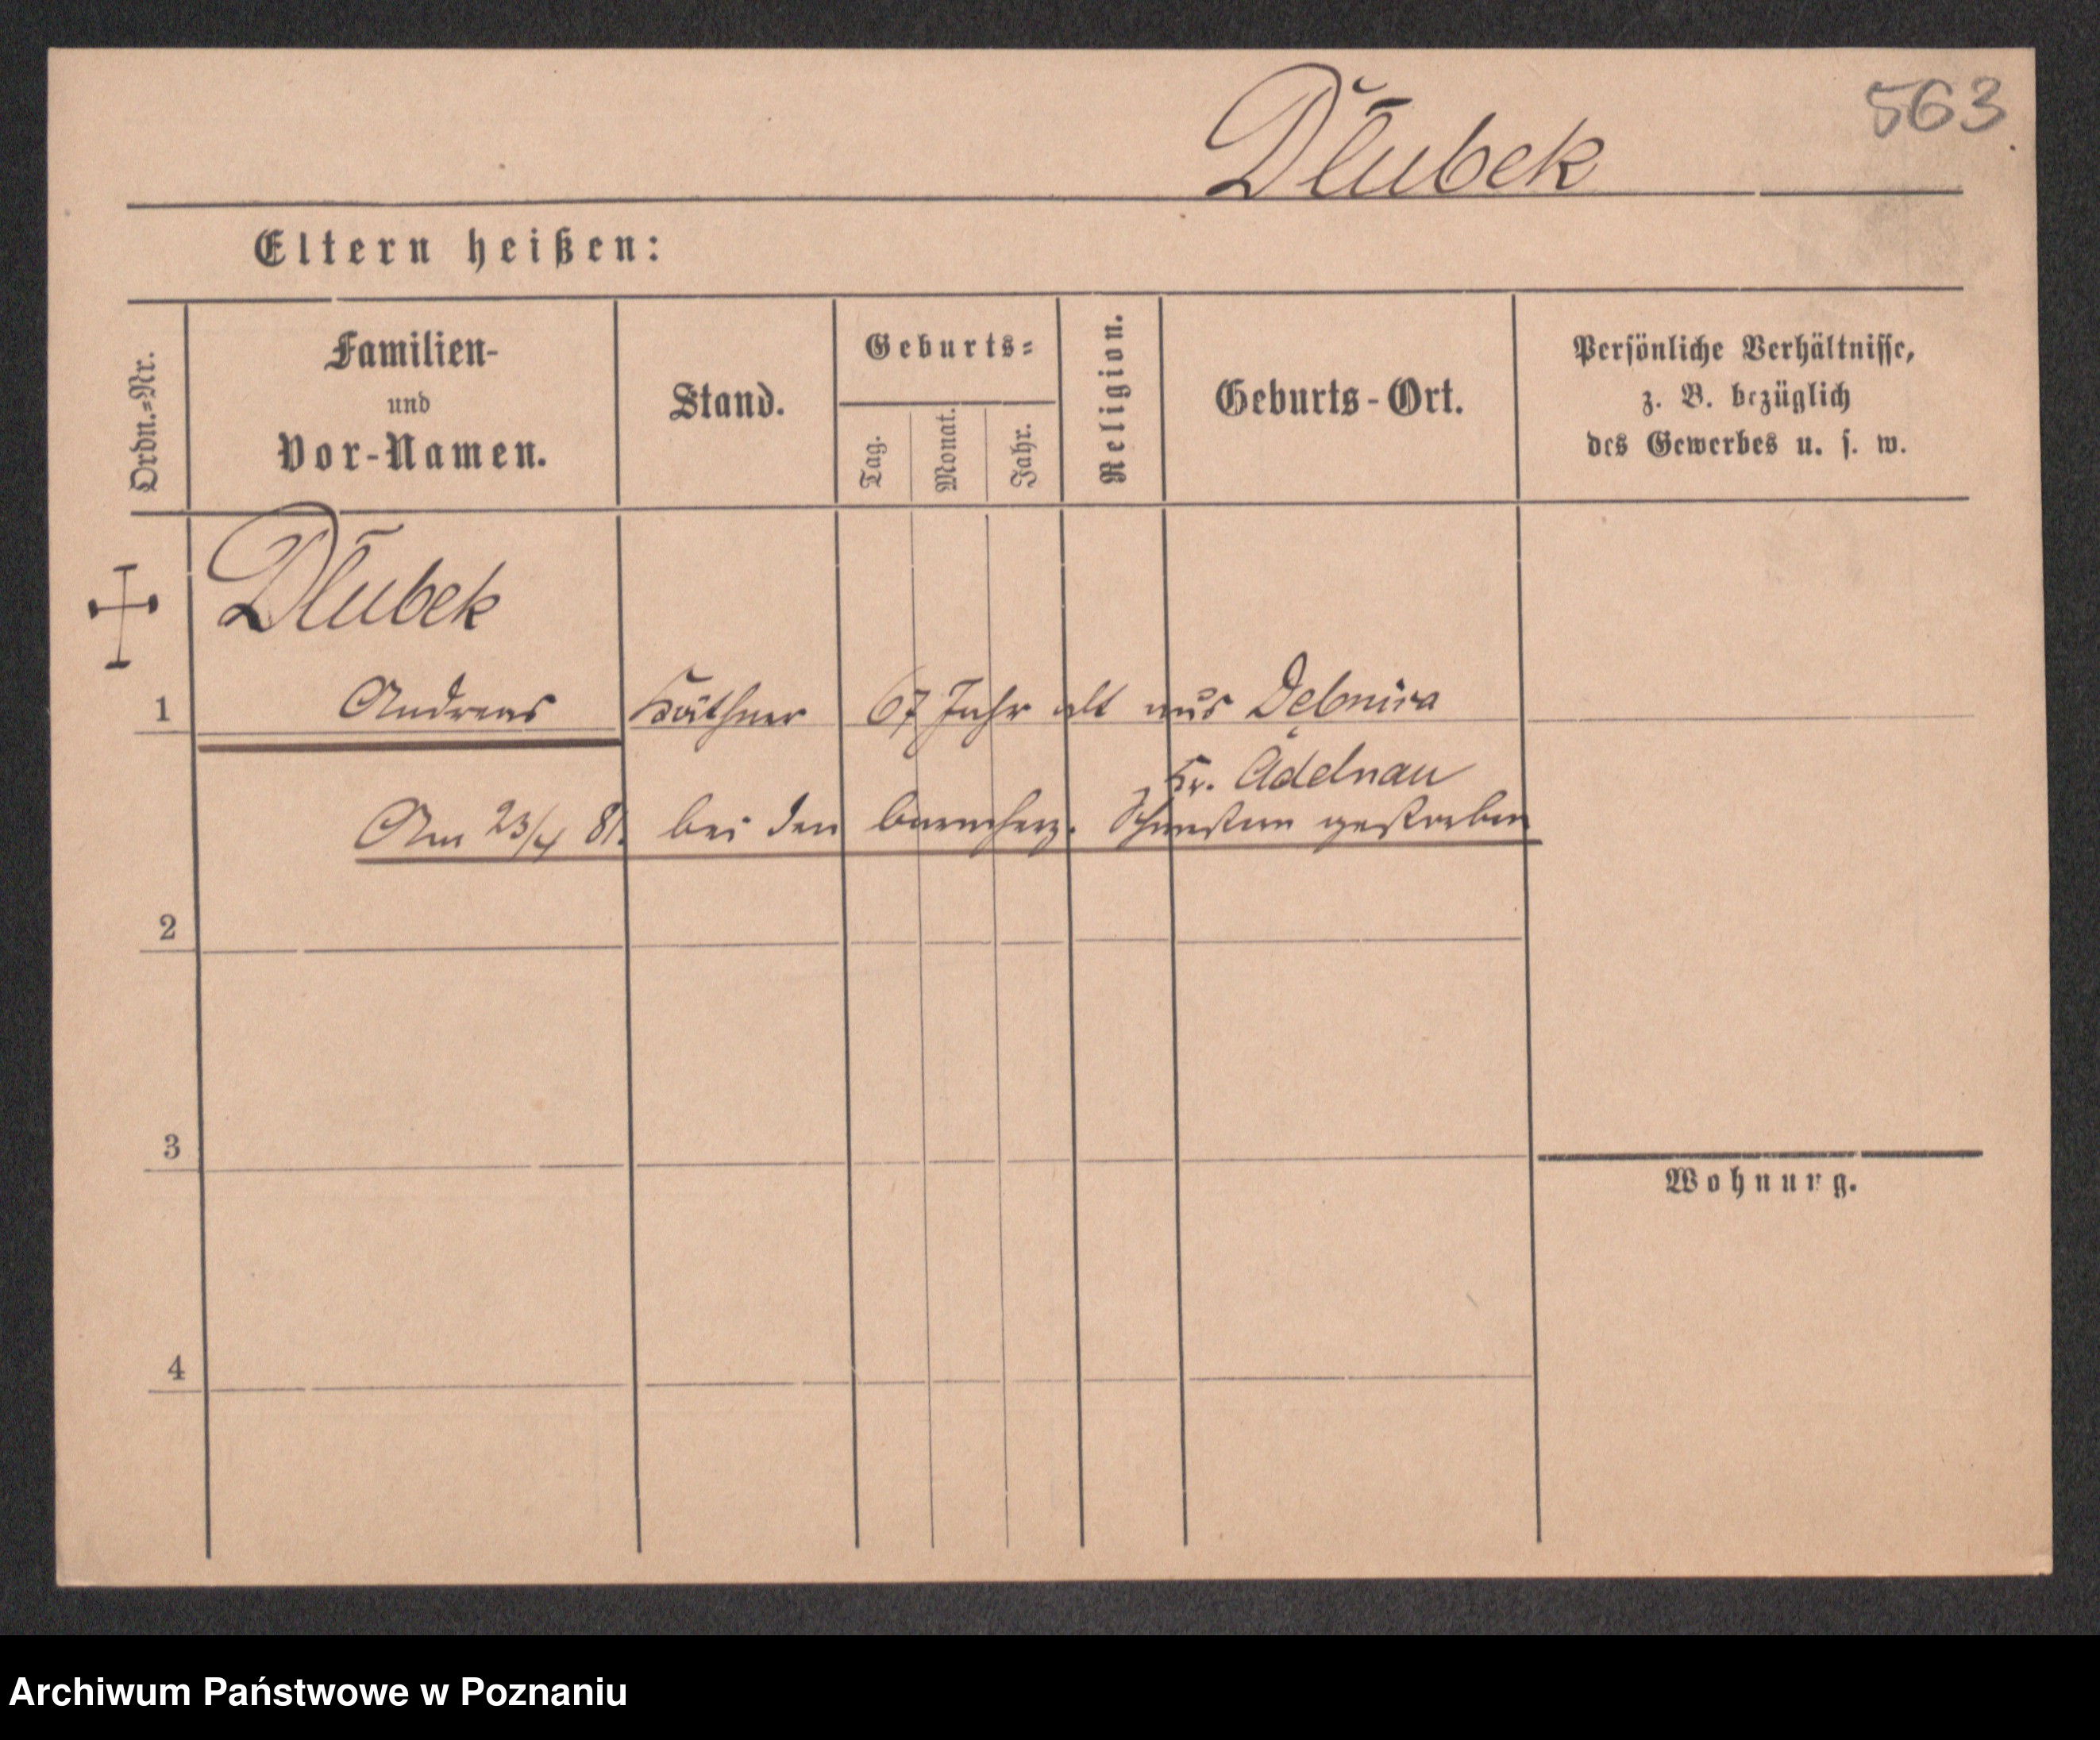 563
Dłubek
Eltern heißen:
Ordn.=Nr.
Familien-
und
Vor-Namen.
Stand.
Geburts=
Tag.
Monat.
Jahr.
Religion.
Geburts-Ort.
Persönliche Verhältnisse,
z. B. bezüglich
des Gewerbes u. s. w.
Dłubek
1 Andreas Käthner 67 Jahr alt aus
Kr. Adelnau
Am 23/4 81. bei den barmherz. Schwestern gestorben
2
3
Wohnung.
4
Archiwum Państwowe w Poznaniu